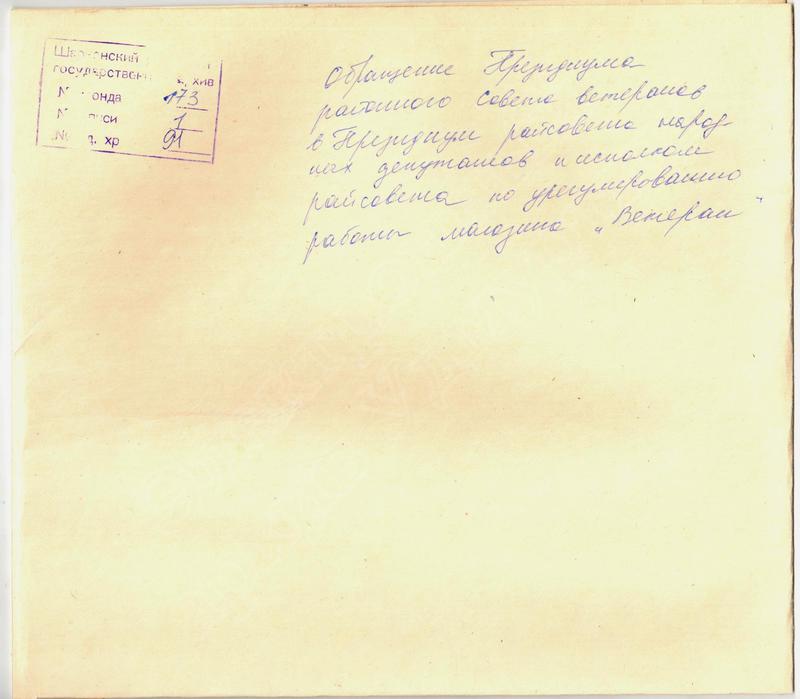 государственный
173
1
91
Обращение Президиума
районного совета ветеранов
в Президиум райсовета народ-
ных депутатов и исполком
райсовета по урегулированию
работы магазина „Ветеран"